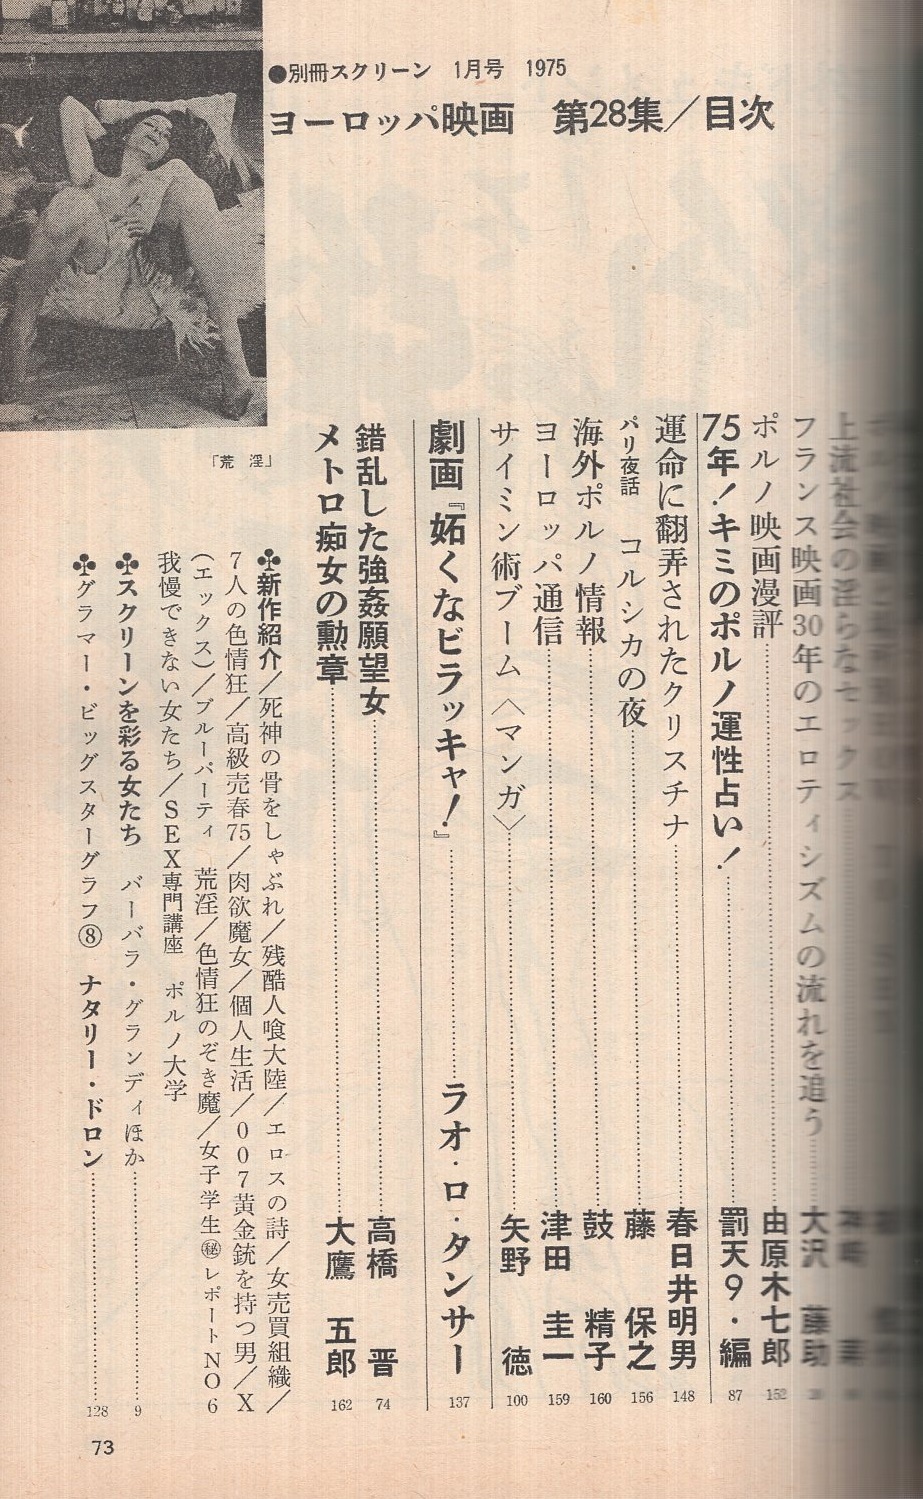 ●別冊スクリーン 1月号 1975
ヨーロッパ映画 第28集／目次
上流社会の淫らなセックス
フランス映画30年のエロティシズムの流れを追う 大沢 藤助
ポルノ映画漫評 由原木七郎 152
75年！キミのポルノ運性占い！ 罰天9・編 87
運命に翻弄されたクリスチナ 春日井明男 148
パリ夜話 コルシカの夜 藤 保之 156
海外ポルノ情報 鼓 精子 160
ヨーロッパ通信 津田 圭一 159
サイミン術ブーム〈マンガ〉 矢野 徳 100
劇画『妬くなビラッキャ！』 ラオ・ロ・タンサー 137
錯乱した強姦願望女 高橋 晋 74
メトロ痴女の勲章 大鷹 五郎 162
「荒 淫」
♣新作紹介／死神の骨をしゃぶれ／残酷人喰大陸／エロスの詩／女売買組織／
7人の色情狂／高級売春75／肉欲魔女／個人生活／007黄金銃を持つ男／X
(エックス)／ブルーパーティ 荒淫／色情狂のぞき魔／女子学生㊙レポートNO6
我慢できない女たち／SEX専門講座 ポルノ大学
♣スクリーンを彩る女たち バーバラ・グランディほか 9
♣グラマー・ビッグスターグラフ⑧ ナタリー・ドロン 128
73